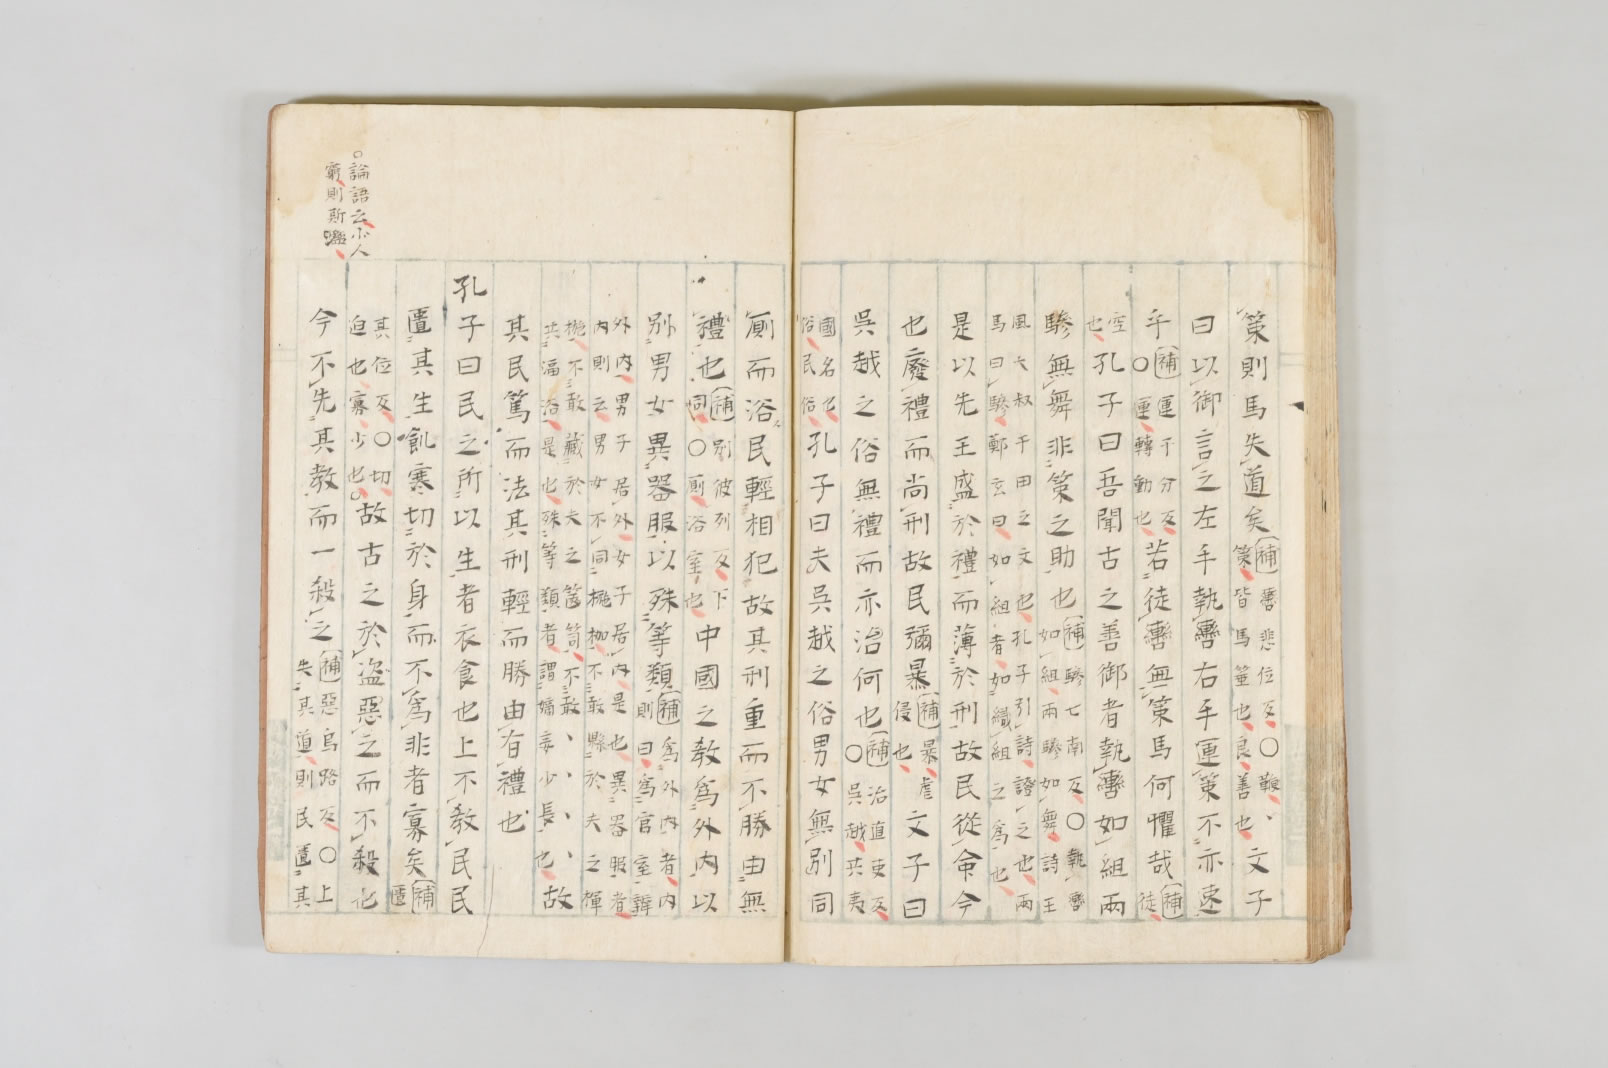 策則馬失道矣(補)轡悲位反○鞭、策皆馬箠也良善也文子
曰以御言之左手執轡右手運策不亦速
乎(補)運于分反○運轉動也若徒轡無策馬何懼哉(補)徒
空也孔子曰吾聞古之善御者執轡如組兩
驂無舞非策之助也(補)驂七南反○執轡如組兩驂如舞詩王
風大叔于田之文也孔子引詩證之也兩馬曰驂鄭玄曰如組者如織組之爲也
是以先王盛於禮而薄於刑故民從命今
也廢禮而尚刑故民彌暴(補)暴虐侵也文子曰
吳越之俗無禮而亦治何也(補)治直吏反○吳越共夷
國名也俗民俗孔子曰夫吳越之俗男女無別同
厠而浴民輕相犯故其刑重而不勝由無
禮也(補)別彼列反下同○厠浴室也中國之教爲外內以
別男女異器服以殊等類(補)爲外內者內則曰爲宮室辯
外內男子居外女子居內是也異器服者內則云男女不同椸枷不敢縣於夫之楎
椸不敢藏於夫之篋笥不敢、、、共湢浴是也殊等類者謂嫡妾少長也故
其民篤而法其刑輕而勝由有禮也
孔子曰民之所以生者衣食也上不教民民
匱其生飢寒切於身而不爲非者寡矣(補)匱
其位反○切迫也寡少也故古之於盜惡之而不殺也
今不先其教而一殺之(補)惡烏路反○上失其道則民匱其
○論語云小人
窮則斯濫